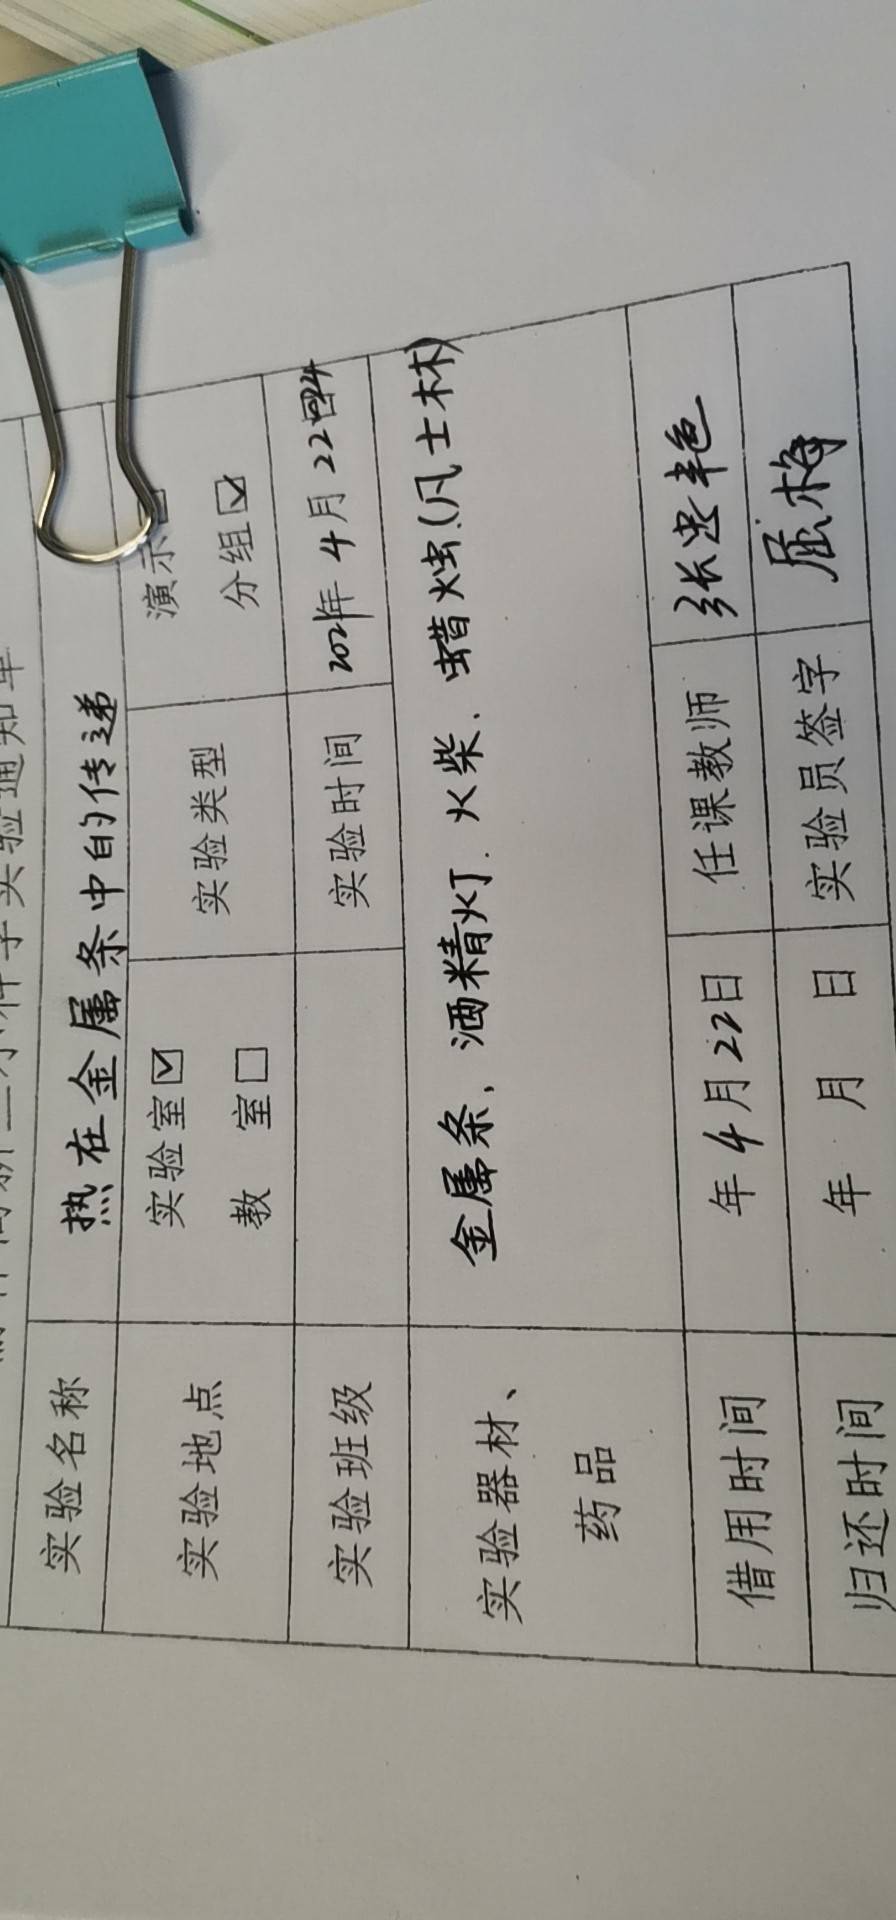 科学实验通知单
实验名称 热在金属条中的传递
实验地点 实验室☑ 实验类型 演示
教 室□ 分组☑
实验班级 实验时间 2021年4月22
实验器材、 金属条、酒精灯.火柴、蜡烛(凡士林)
药品
借用时间 年4月22日 任课教师 张忠艳
归还时间 年 月 日 实验员签字 屈梅